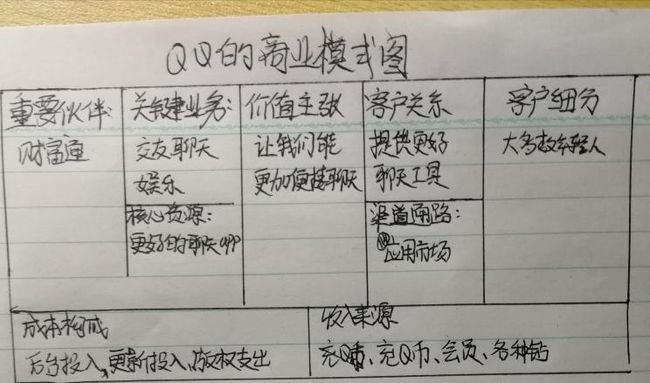 QQ的商业模式图
重要伙伴:
财富通
关键业务:
交友聊天
娱乐
核心资源:
更好的聊天app
价值主张
让我们能
更加便捷聊天
客户关系
提供更好
聊天工具
渠道通路:
应用市场
客户细分
大多数年轻人
成本构成
后台投入,更新投入、版权支出
收入来源
充Q币、充Q币、会员、各种钻